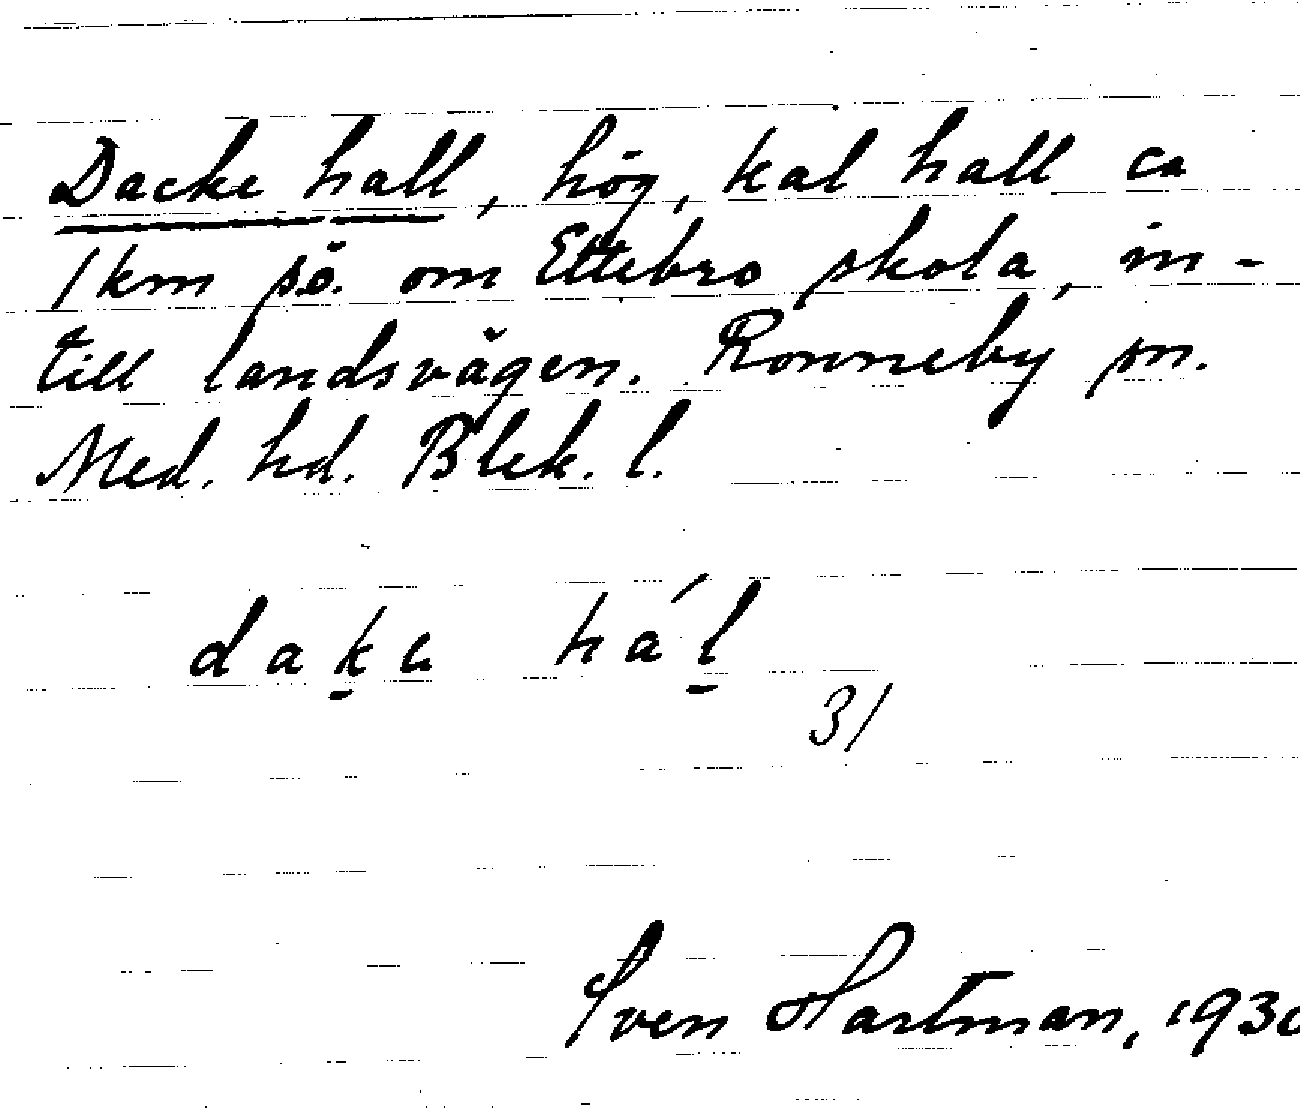 Dacke hall, hög, kal hall ca
1 km sö. om Ettebro skola, in-
till landsvägen. Ronneby sn.
Med. hd. Blek. l.
daḵɩ há́ḻ
31
Sven Hartman, 1930